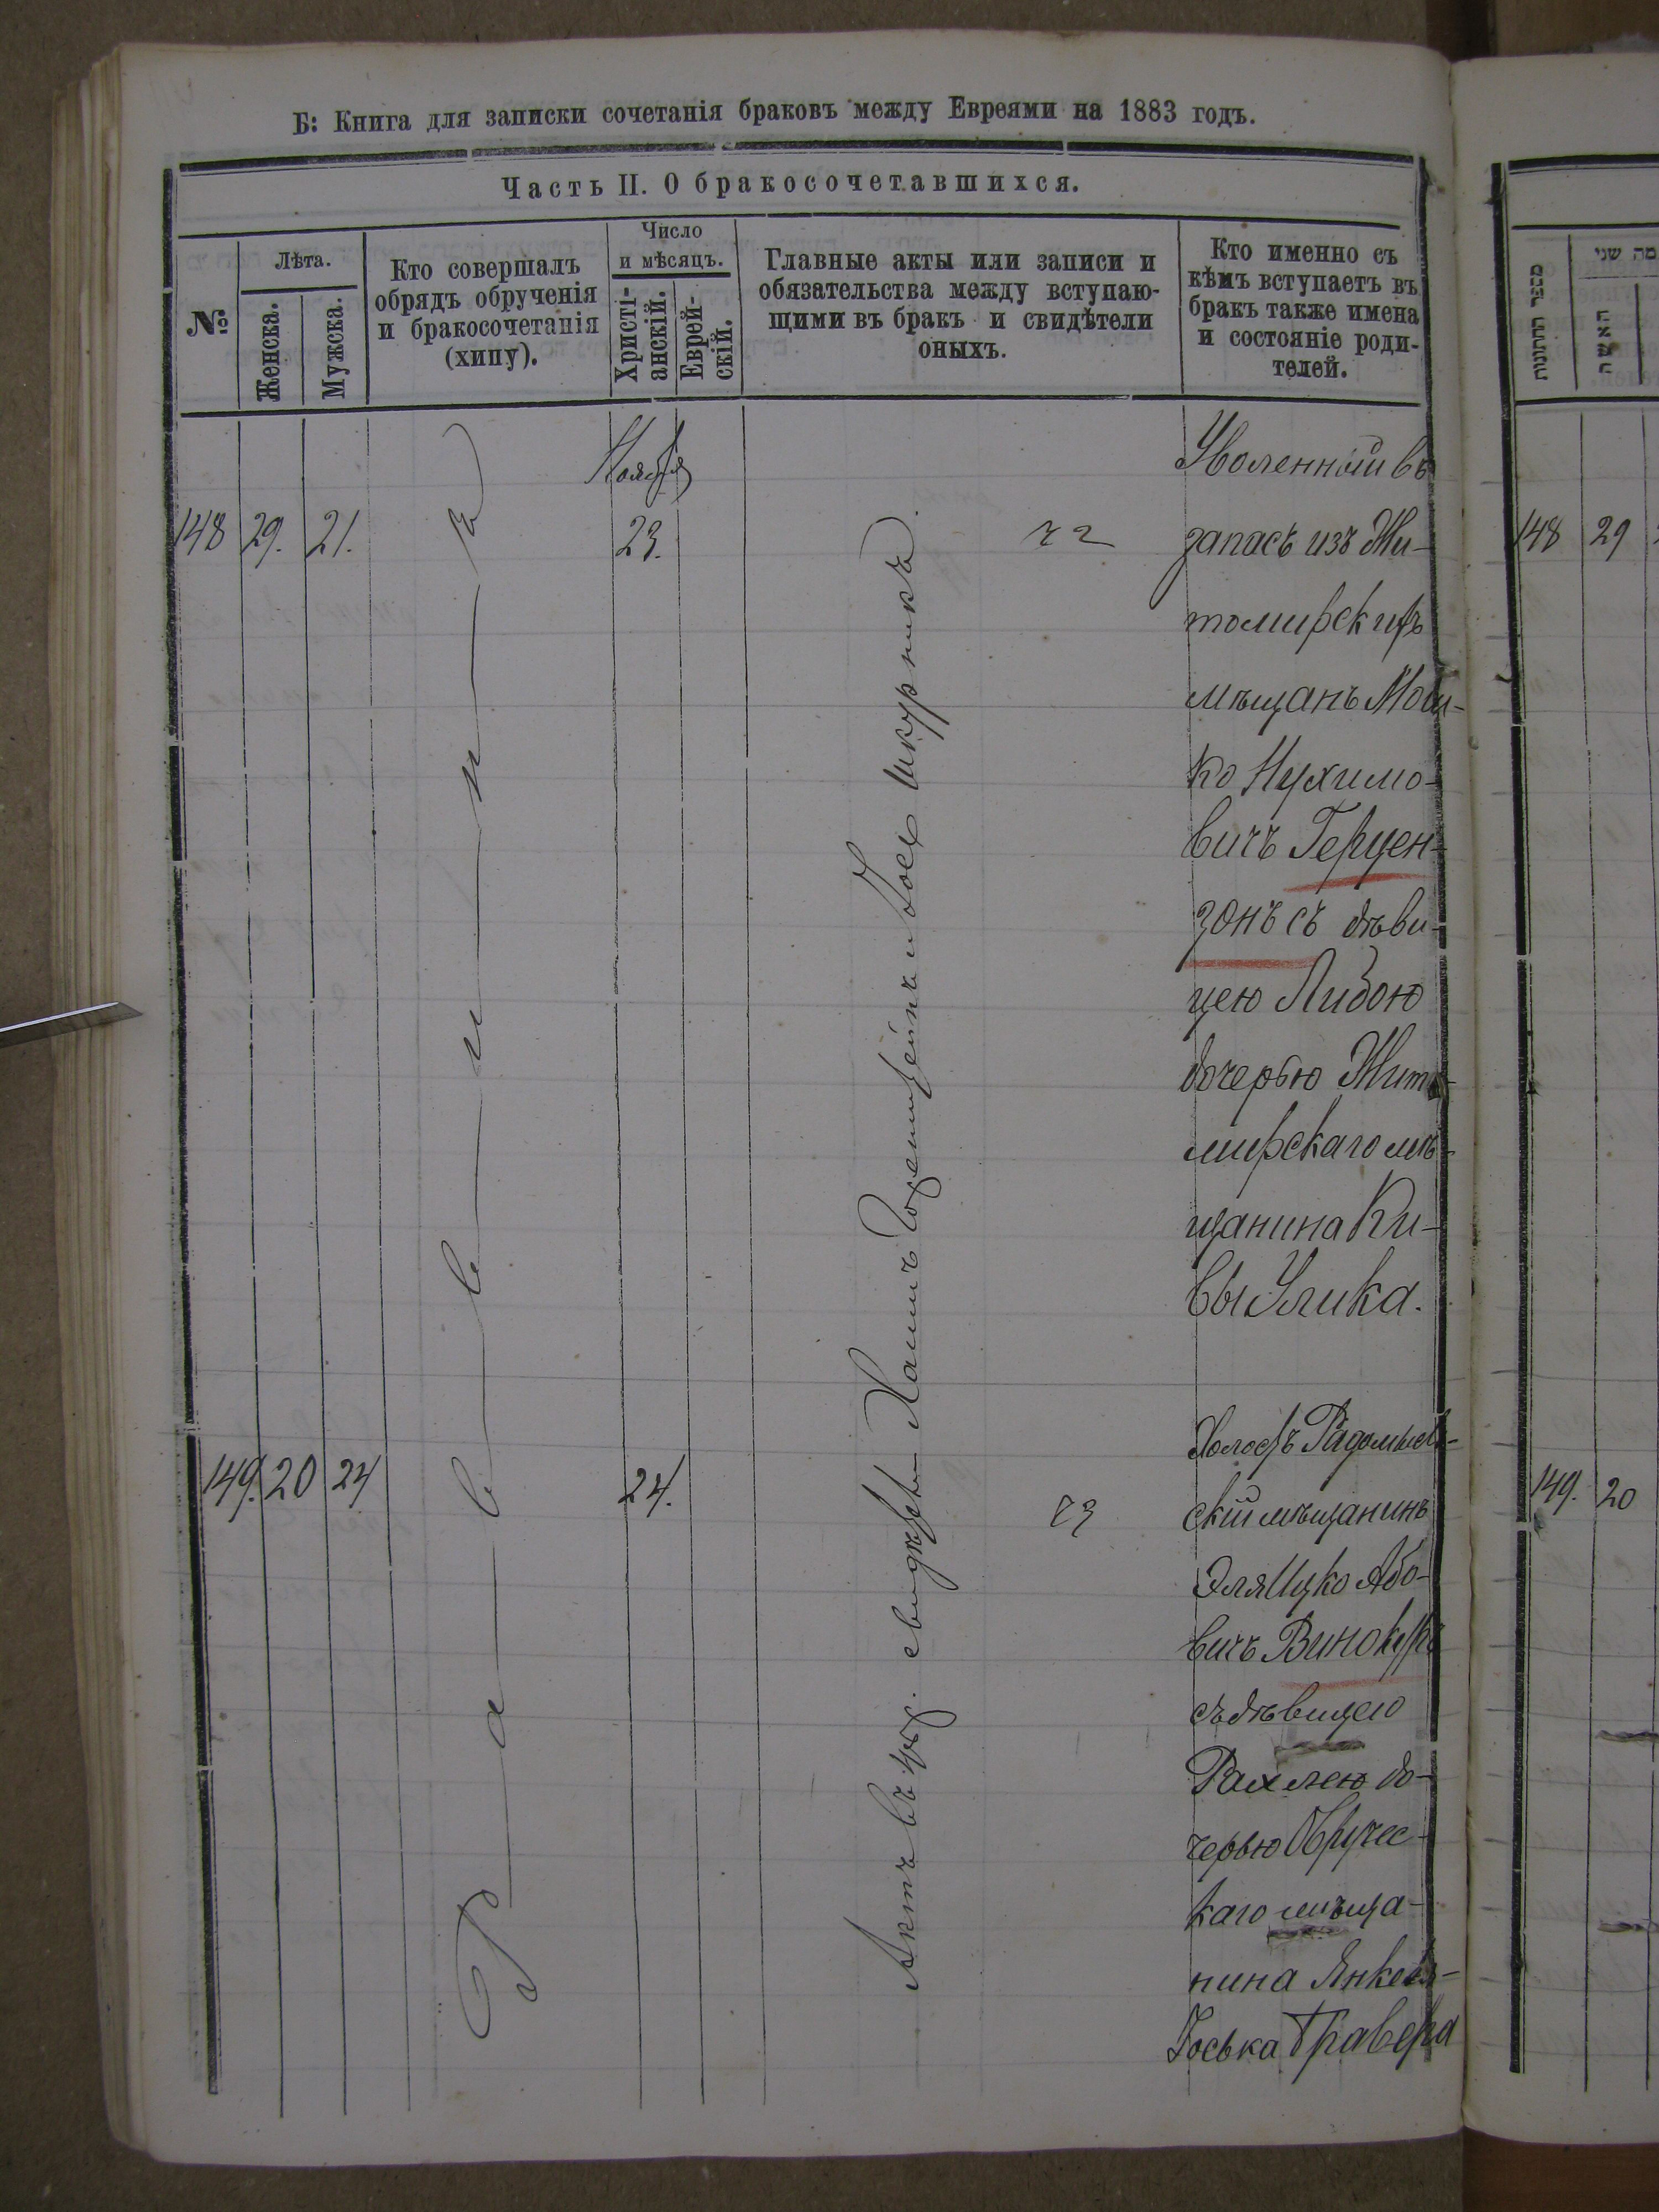 Б: Книга для записки сочетанія браковъ между Евреями на 1883 годъ.
Часть II. О бракосочетавшихся.
№
Лѣта.
Женска.
Мужска.
Кто совершалъ
обрядъ обрученія
и бракосочетанія
(хипу).
Число
и мѣсяцъ.
Христі-
анскій.
Еврей-
скій.
Главные акты или записи и
обязательства между вступаю-
щими въ бракъ и свидѣтели
оныхъ.
Кто именно съ
кѣмъ вступаетъ въ
бракъ также имена
и состояніе роди-
телей.
Раввинъ
Актъ въ свидѣтели Хаимъ и Іось Шкурникъ
148 29. 21.
Ноября
23.
72
Уволенный въ
запасъ изъ Жи-
томирскихъ
мѣщанъ Мош-
ко Нухимо-
вичъ Герцен-
зонъ съ дѣви-
цею Либою
дочерью Жито-
мирскаго мѣ-
щанина Ки-
вы Улика.
149. 20 24
24.
73
Холостъ Радомысль-
скій мѣщанинъ
Эля Ицко Або-
вичъ Винокуръ
съ дѣвицею
Рахлею до-
черью Овручес-
каго мѣща-
нина Янкеля-
Іоська Травера
מספר החתונות
מה שני
האשה
148 29
149. 20